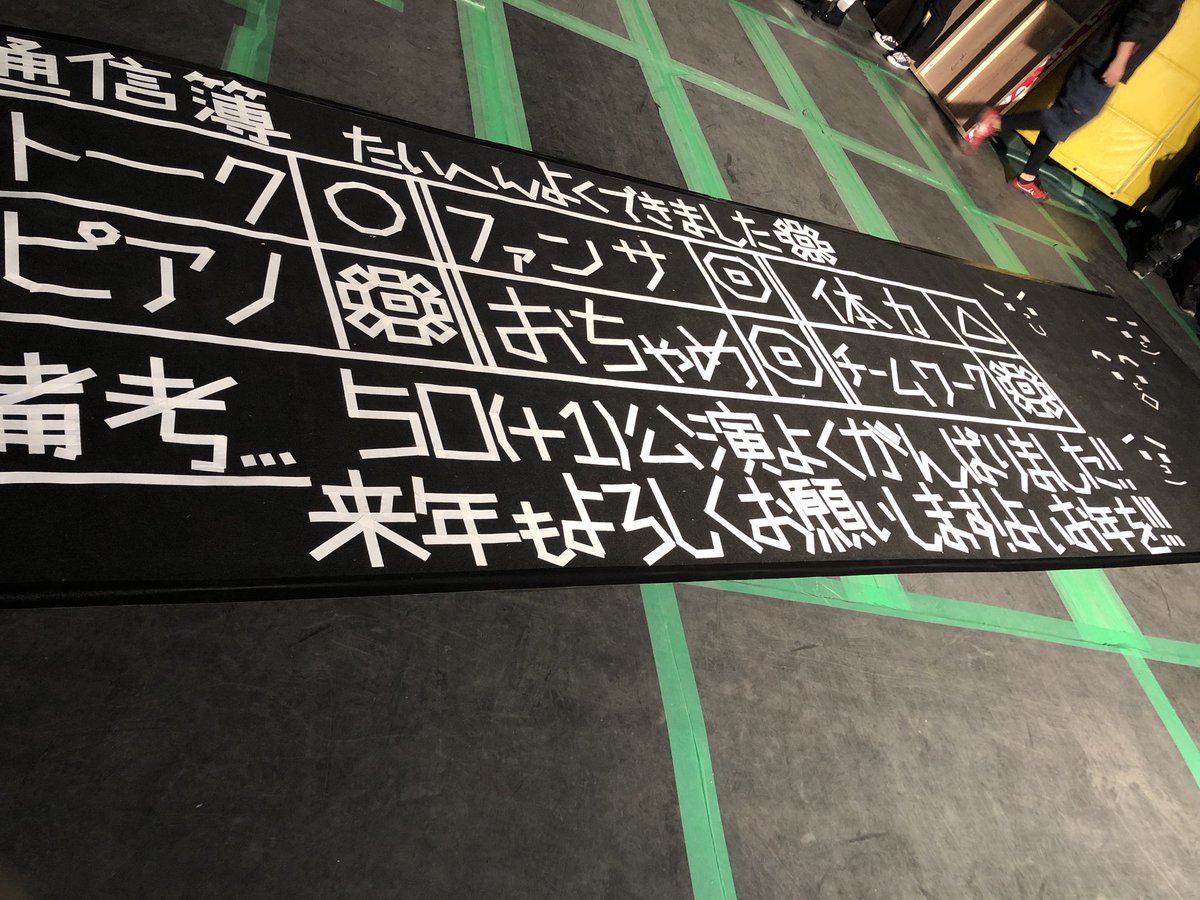 通信簿 たいへんよくできました
トーク ○ ファンサ ◎ 体力 △
ピアノ おちゃめ ◎ チームワーク
備考… 50(+1)公演よくがんばりました!!
来年もよろしくお願いします!よいお年を!!!